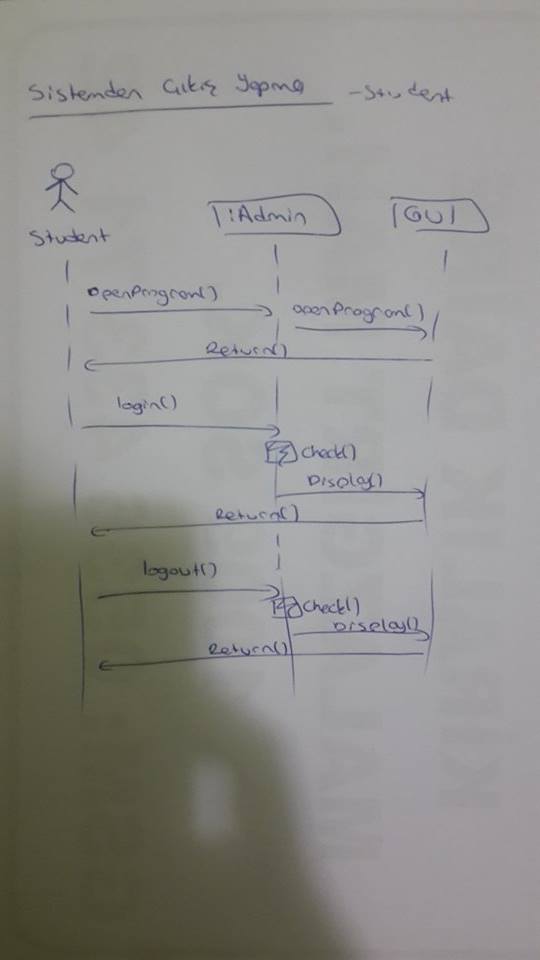 Sistemden Çıkış Yapma - Student
Student
:Admin
GUI
openProgram()
openProgram()
Return()
login()
Check()
Display()
Return()
logout()
Check()
Display()
Return()